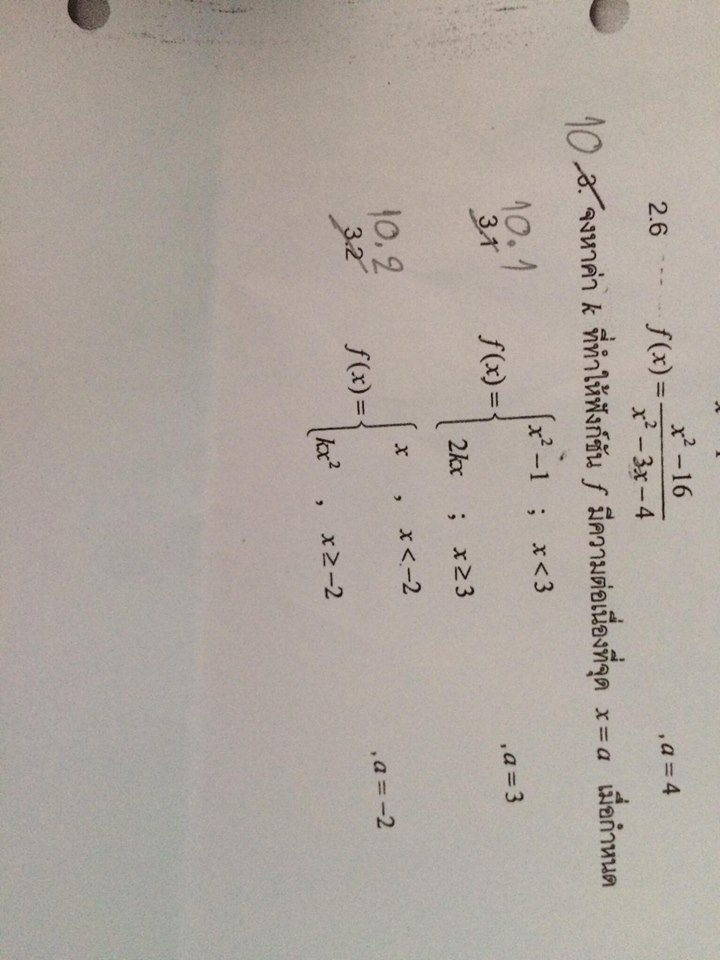 2.6 f(x) = \frac{x^2 - 16}{x^2 - 3x - 4} , a = 4
10 3. จงหาค่า k ที่ทำให้ฟังก์ชัน f มีความต่อเนื่องที่จุด x = a เมื่อกำหนด
10.1 3.1 f(x) = { x² − 1 ; x < 3 , a = 3
2kx ; x ≥ 3
10.2 3.2 f(x) = { x , x < −2 , a = −2
kx² , x ≥ −2